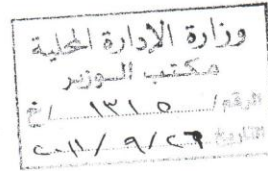 وزارة الإدارة المحلية
مكتب الوزير
الرقم / ١٣١٥ / خ
التاريخ ٢٠١١/٩/٢٦